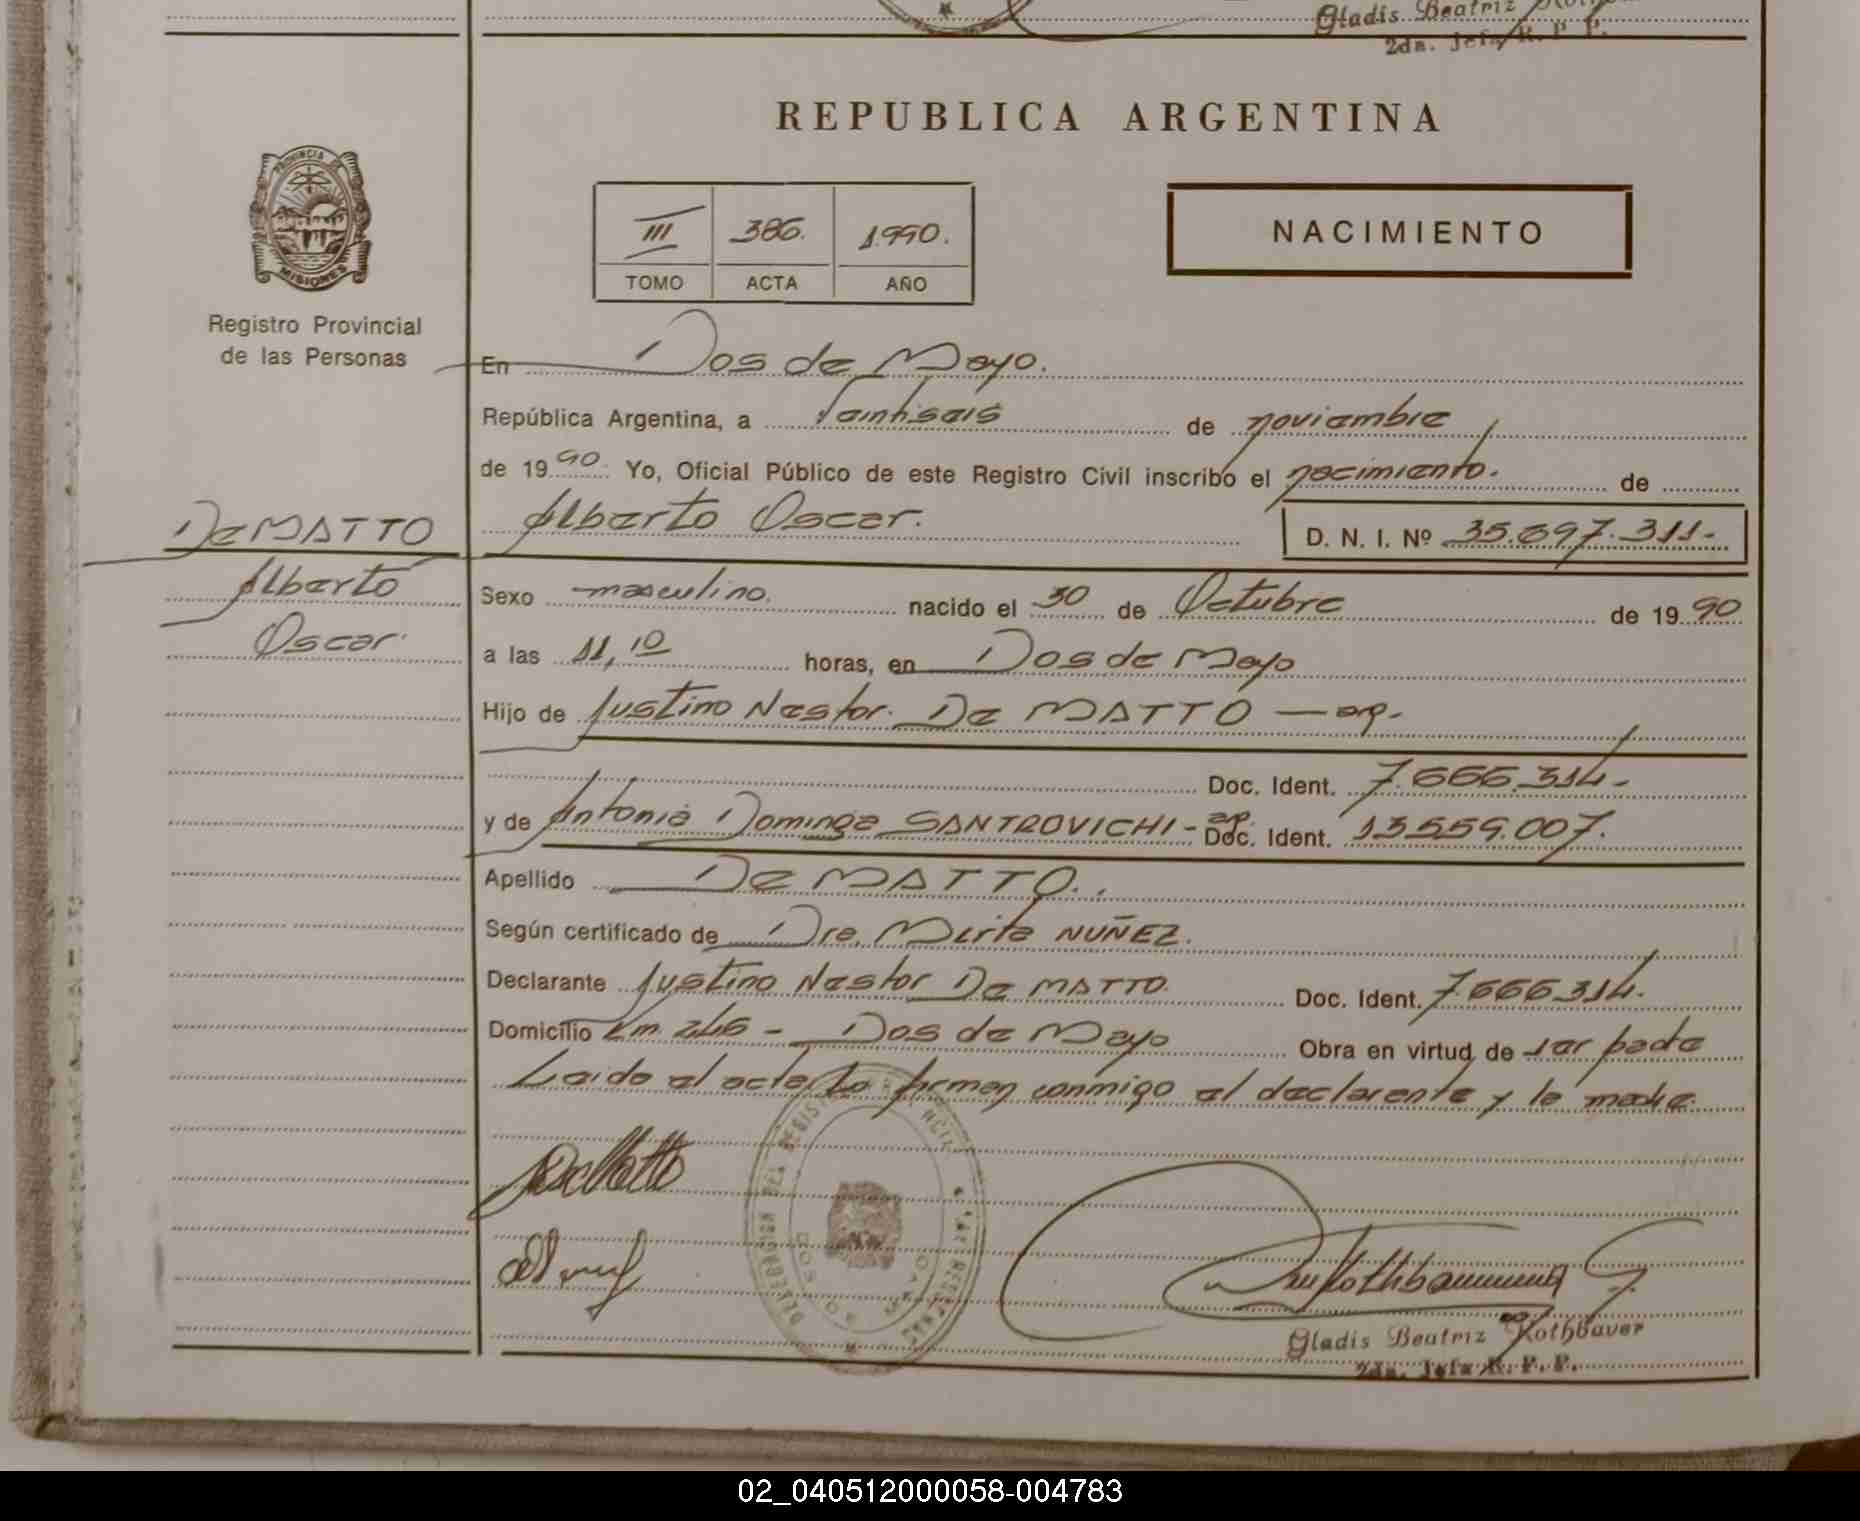 Gladis Beatriz
2da. Jefa R. P. P.
REPUBLICA ARGENTINA
PROVINCIA DE
MISIONES
III 386. 1.990.
TOMO ACTA AÑO
NACIMIENTO
Registro Provincial
de las Personas
En Dos de Mayo.
República Argentina, a Veintiseis de noviembre
de 1990. Yo, Oficial Público de este Registro Civil inscribo el nacimiento. de
De MATTO
Alberto Oscar.
D. N. I. Nº 35.697.311-
Alberto
Oscar.
Sexo masculino. nacido el 30 de Octubre de 1990
a las 11,10 horas, en Dos de Mayo
Hijo de Justino Nestor. De MATTO — arg.
Doc. Ident. 7.666.314-
y de Antonia Dominga SANTROVICHI - arg. Doc. Ident. 13.559.007.
Apellido De MATTO.
Según certificado de Dra. Mirta NUÑEZ.
Declarante Justino Nestor De MATTO. Doc. Ident. 7.666.314.
Domicilio Km. 246 - Dos de Mayo Obra en virtud de ser padre
Leido el acta, lo firman conmigo el declarante y la madre.
DELEGACION DEL REGISTRO DE LAS PERSONAS
DOS DE MAYO
Gladis Beatriz Rothbaver
2da. Jefa R. P. P.
02_040512000058-004783